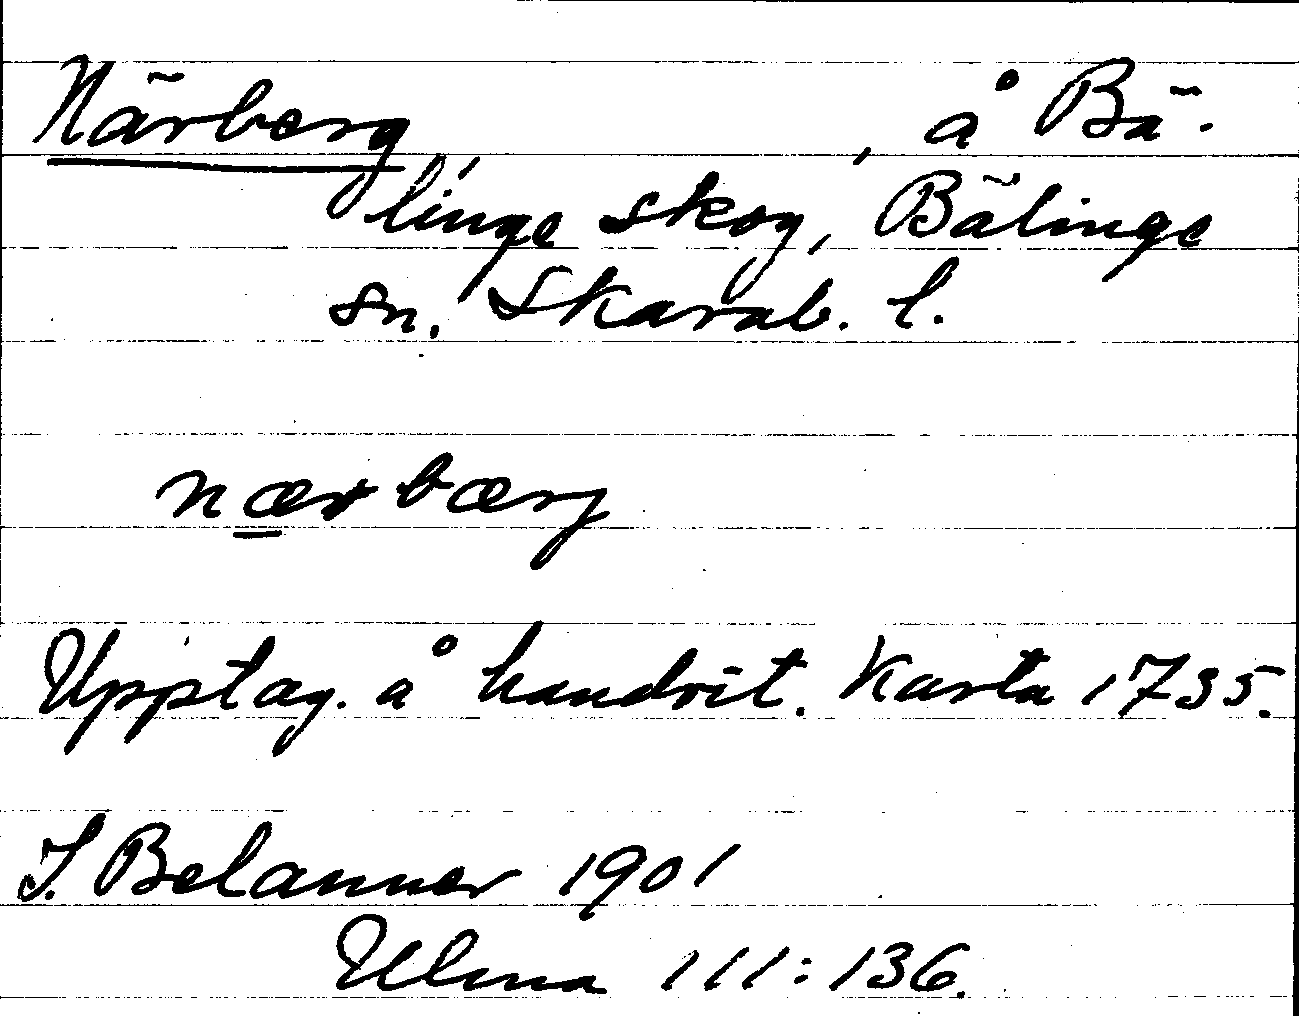 Närberg, å Bä-
linge skog, Bälinge
sn. Skarab. l.
nærbærj
Upptag. å handrit. Karta 1735.
J. Belanner 1901
Ulma 111:136.